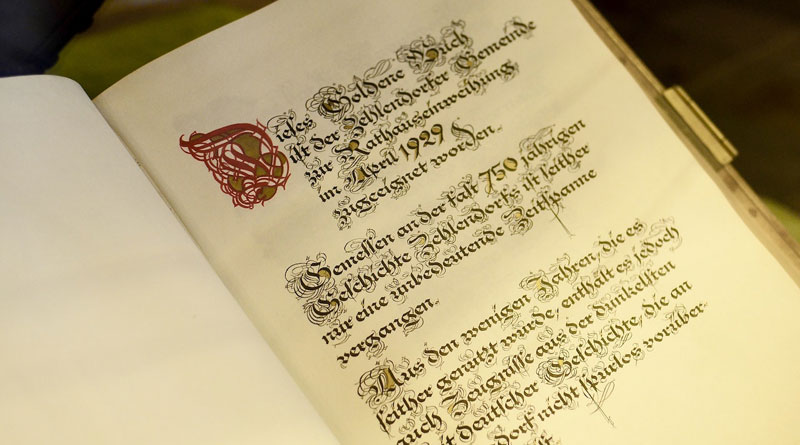 Dieses Goldene Buch
ist der Zehlendorfer Gemeinde
zur Rathauseinweihung
im April 1929
zugeeignet worden.
Gemessen an der fast 750 jährigen
Geschichte Zehlendorfs, ist seither
nur eine unbedeutende Zeitspanne
vergangen.
Aus den wenigen Jahren, die es
seither genutzt wurde, enthält es jedoch
auch Zeugnisse aus der dunkelsten
deutscher Geschichte, die an
dorf nicht spurlos vorüber-